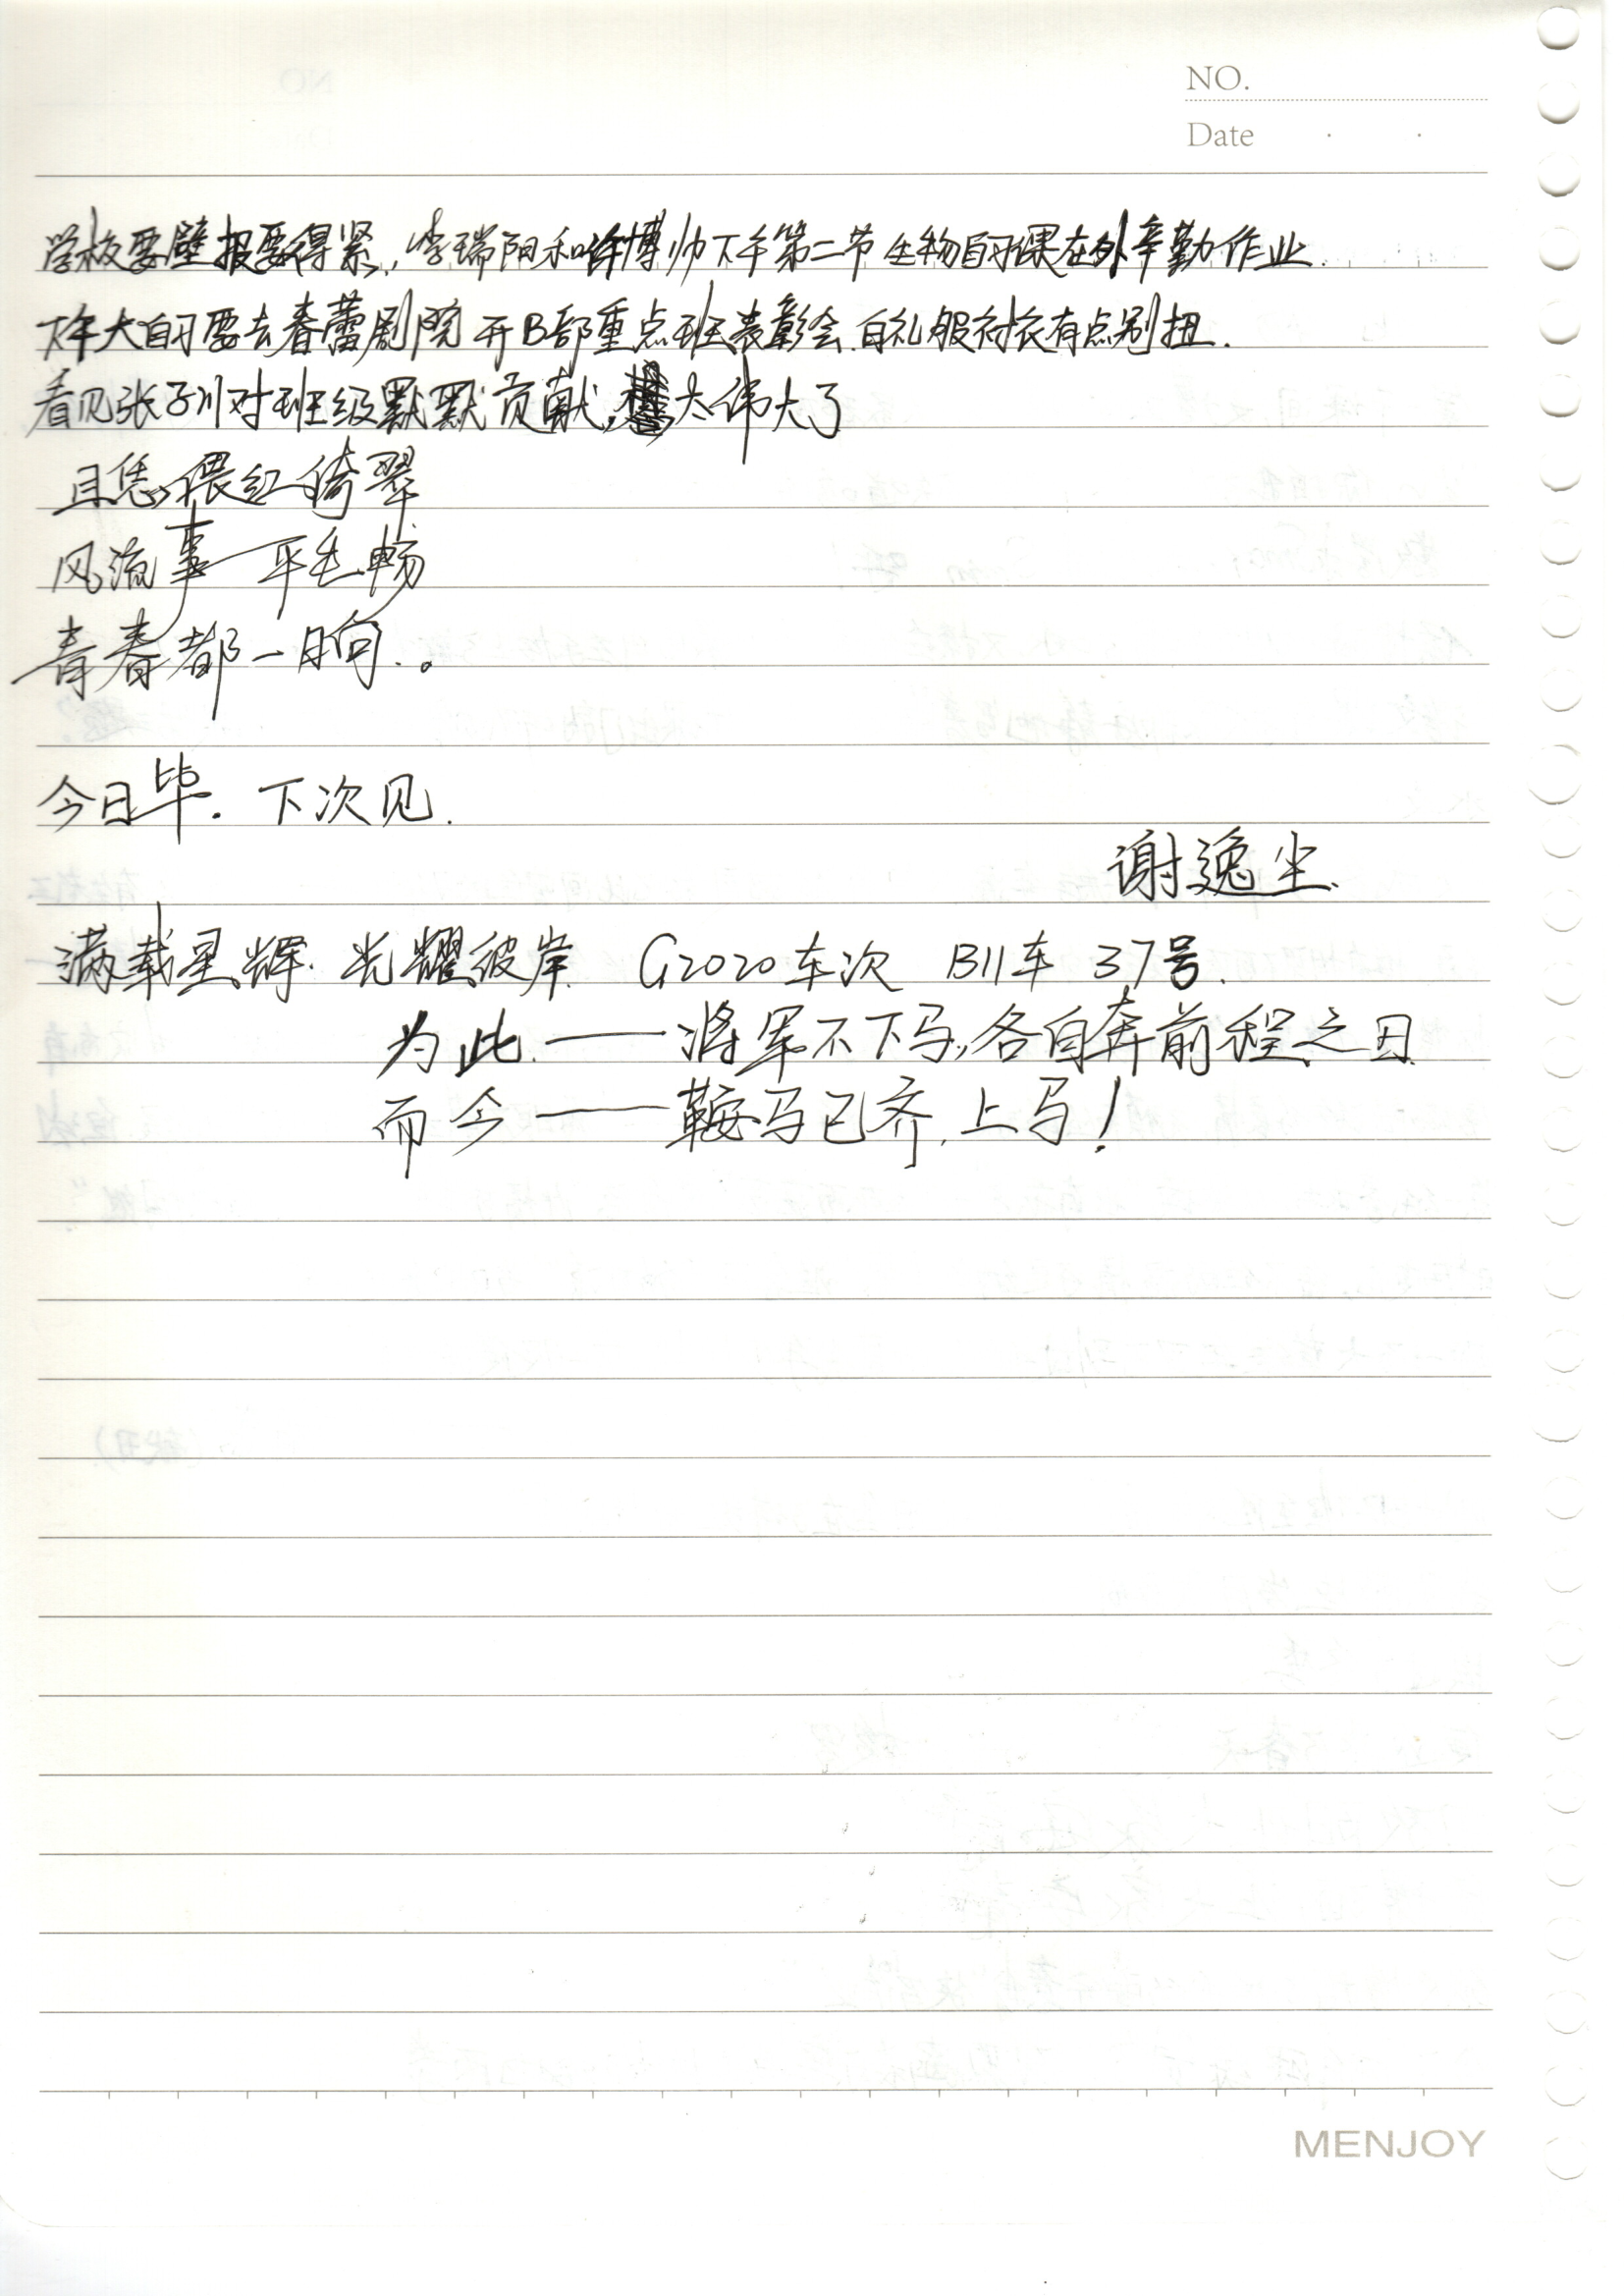 NO.
Date
学校要壁报要得紧，李瑞阳和许博帅下午第二节生物自习课在外辛勤作业.
下午大自习要去春蕾剧院开B部重点班表彰会.白礼服衬衣有点别扭.
看见张子川对班级默默贡献，太伟大了
且恁偎红倚翠
风流事平生畅
青春都一晌.。
今日毕. 下次见.
谢逸尘.
满载星辉.光耀彼岸. G2020车次 B11车 37号.
为此.——将军不下马，各自奔前程之日.
而今——鞍马已齐,上马!
MENJOY